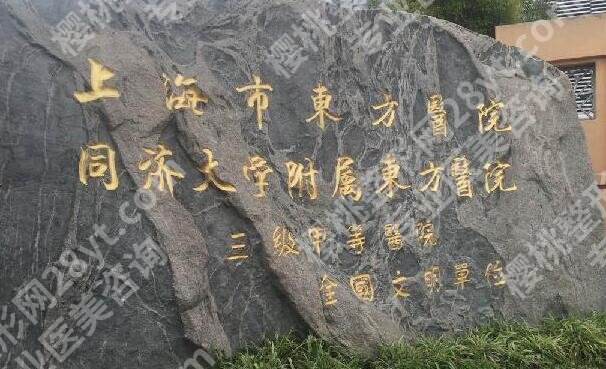 上海市東方醫院
同济大学附属東方醫院
三级甲等醫院
全國文明單位
樱桃整形网28yt.com
专业医美咨询